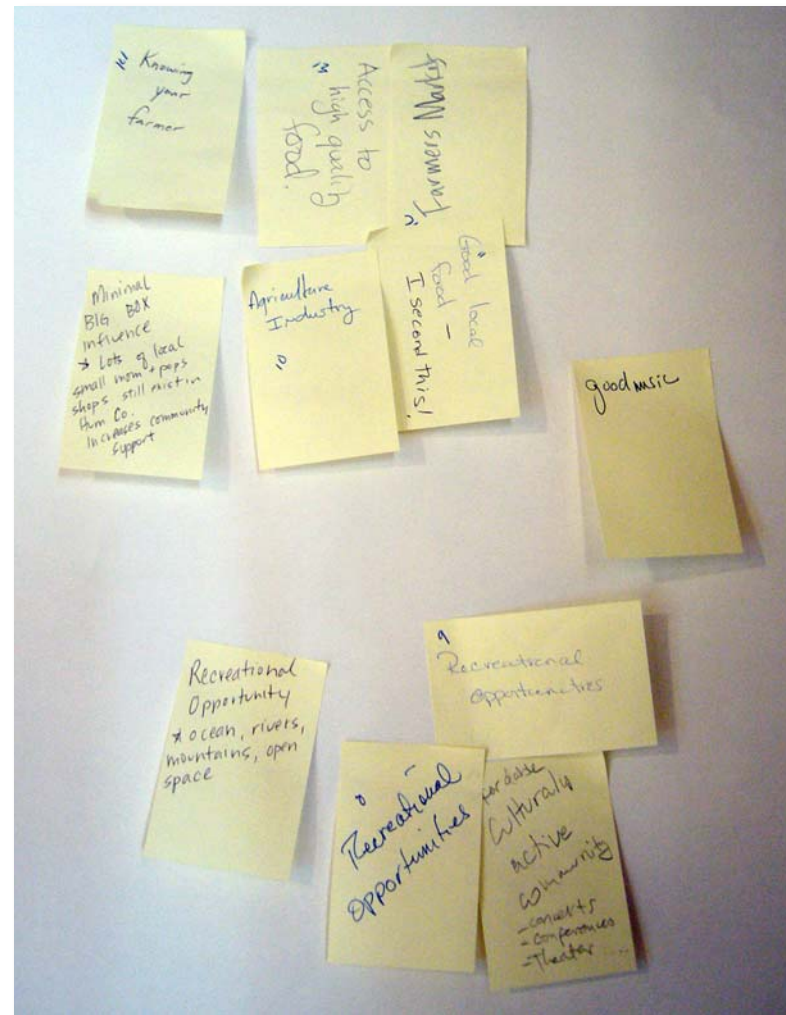 Knowing
your
farmer
Access to
high quality
food.
Farmers Markets
Good local
food –
I second this!
Minimal
BIG BOX
influence
* Lots of local
small mom + pops
shops still exist in
Hum Co.
Increases community
support
Agriculture
Industry
good music
Recreational
Opportunity
* ocean, rivers,
mountains, open
space
Recreational
opportunities
Recreational
opportunities
Culturaly
active
community
- concerts
- conferences
- Theater ....